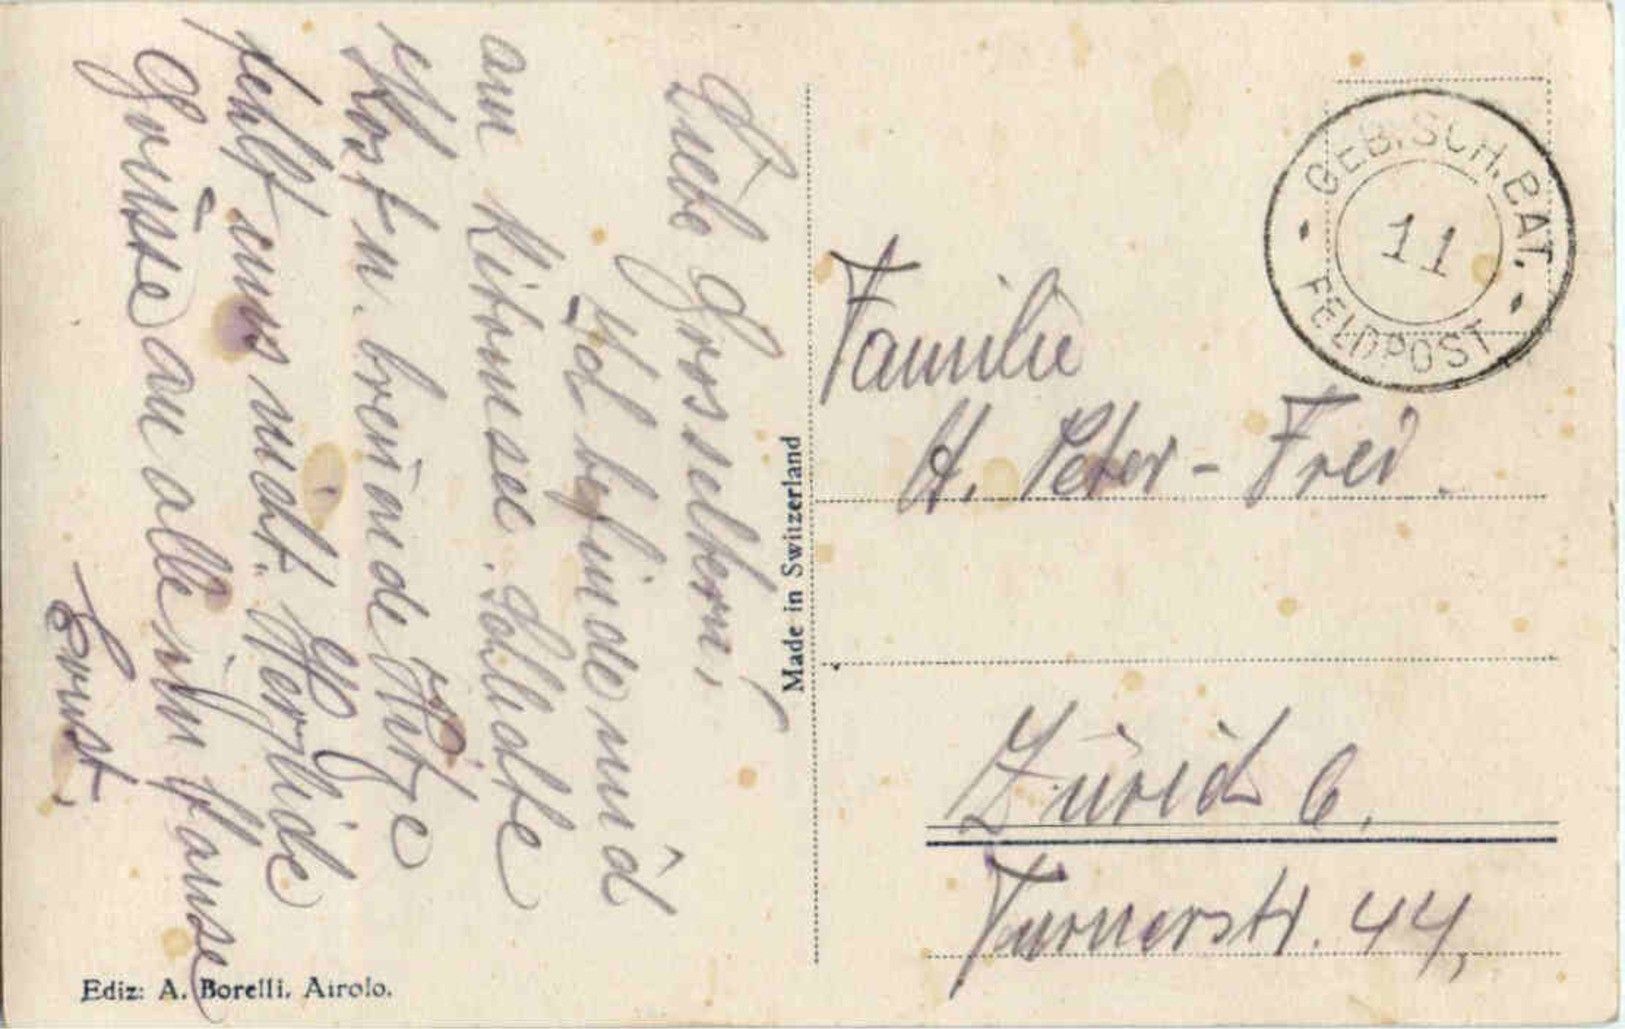 Liebe Grosseltern,
Ich befinde mich
am Ritomsee. Schlechte
Kost u. brennende Hitze
fehlt uns nicht. Herzliche
Grüsse an alle im Hause
Ernst.
Made in Switzerland
Ediz: A. Borelli. Airolo.
GEB. SCH. BAT.
11
FELDPOST
Familie
H. Peter - Frei.
Zürich 6.
Turnerstr. 44,